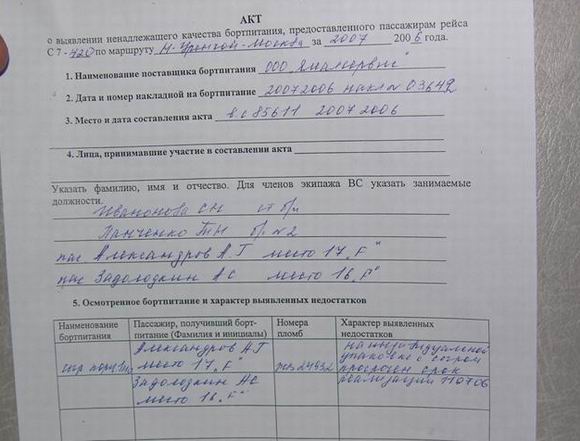 АКТ
о выявлении ненадлежащего качества бортпитания, предоставленного пассажирам рейса
С 7 - 420 по маршруту Н-Уренгой-Москва за 2007 2006 года.
1. Наименование поставщика бортпитания ООО "Ямалсервис"
2. Дата и номер накладной на бортпитание 20072006 накл № 03642
3. Место и дата составления акта вс 85611 20072006
4. Лица, принимавшие участие в составлении акта
Указать фамилию, имя и отчество. Для членов экипажа ВС указать занимаемые
должности.
СН ст б/п
Панченко ТН б/п №2
пас Александров А.Г место 17 "F"
пас Задолодкин АС место 16 "F"
5. Осмотренное бортпитание и характер выявленных недостатков
Наименование бортпитания
Пассажир, получивший борт-
питание (Фамилия и инициалы)
Номера пломб
Характер выявленных недостатков
сыр
Александров А.Г
место 17 "F"
на индивидуальной
упаковке с сыром
просрочен срок
реализации 110706
Задолодкин АС
место 16 "F"